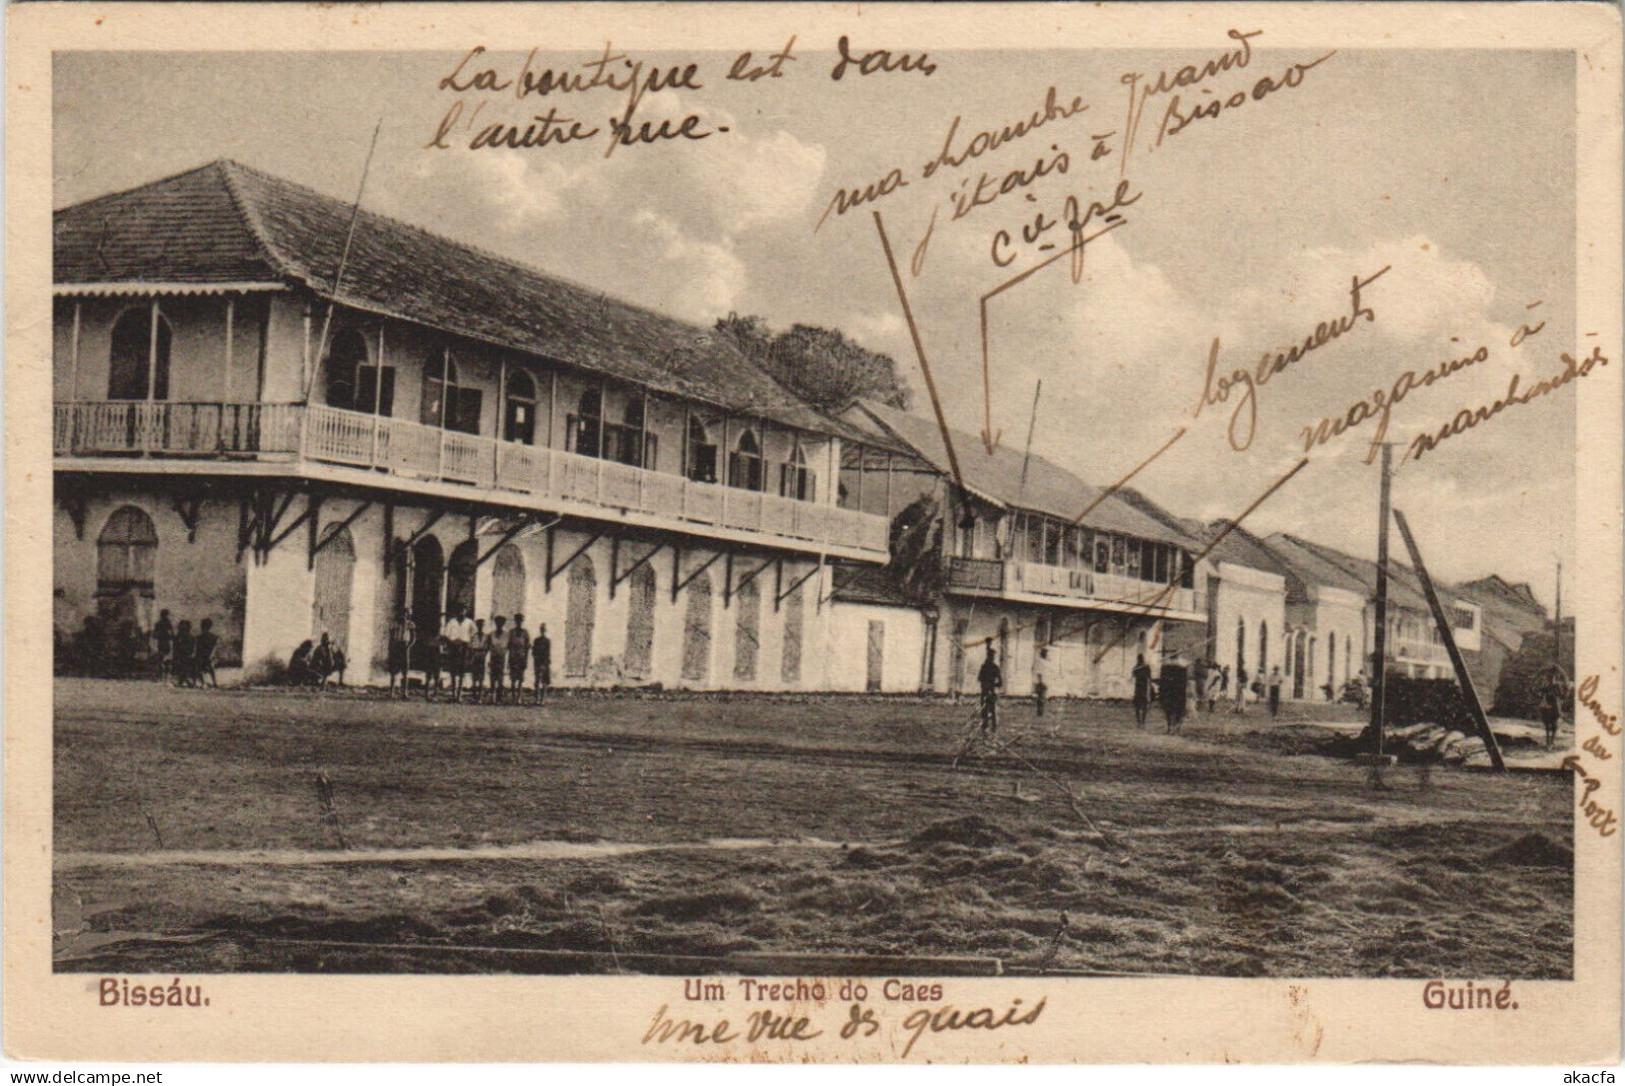 La boutique est dans
l'autre rue.
ma chambre quand
j'étais à Bissao
Cie fse
logements
magasins à
marchandises
du
Port
Bissáu.
Um Trecho do Caes
Guiné.
Une vue des quais
akacfa.com
akacfa